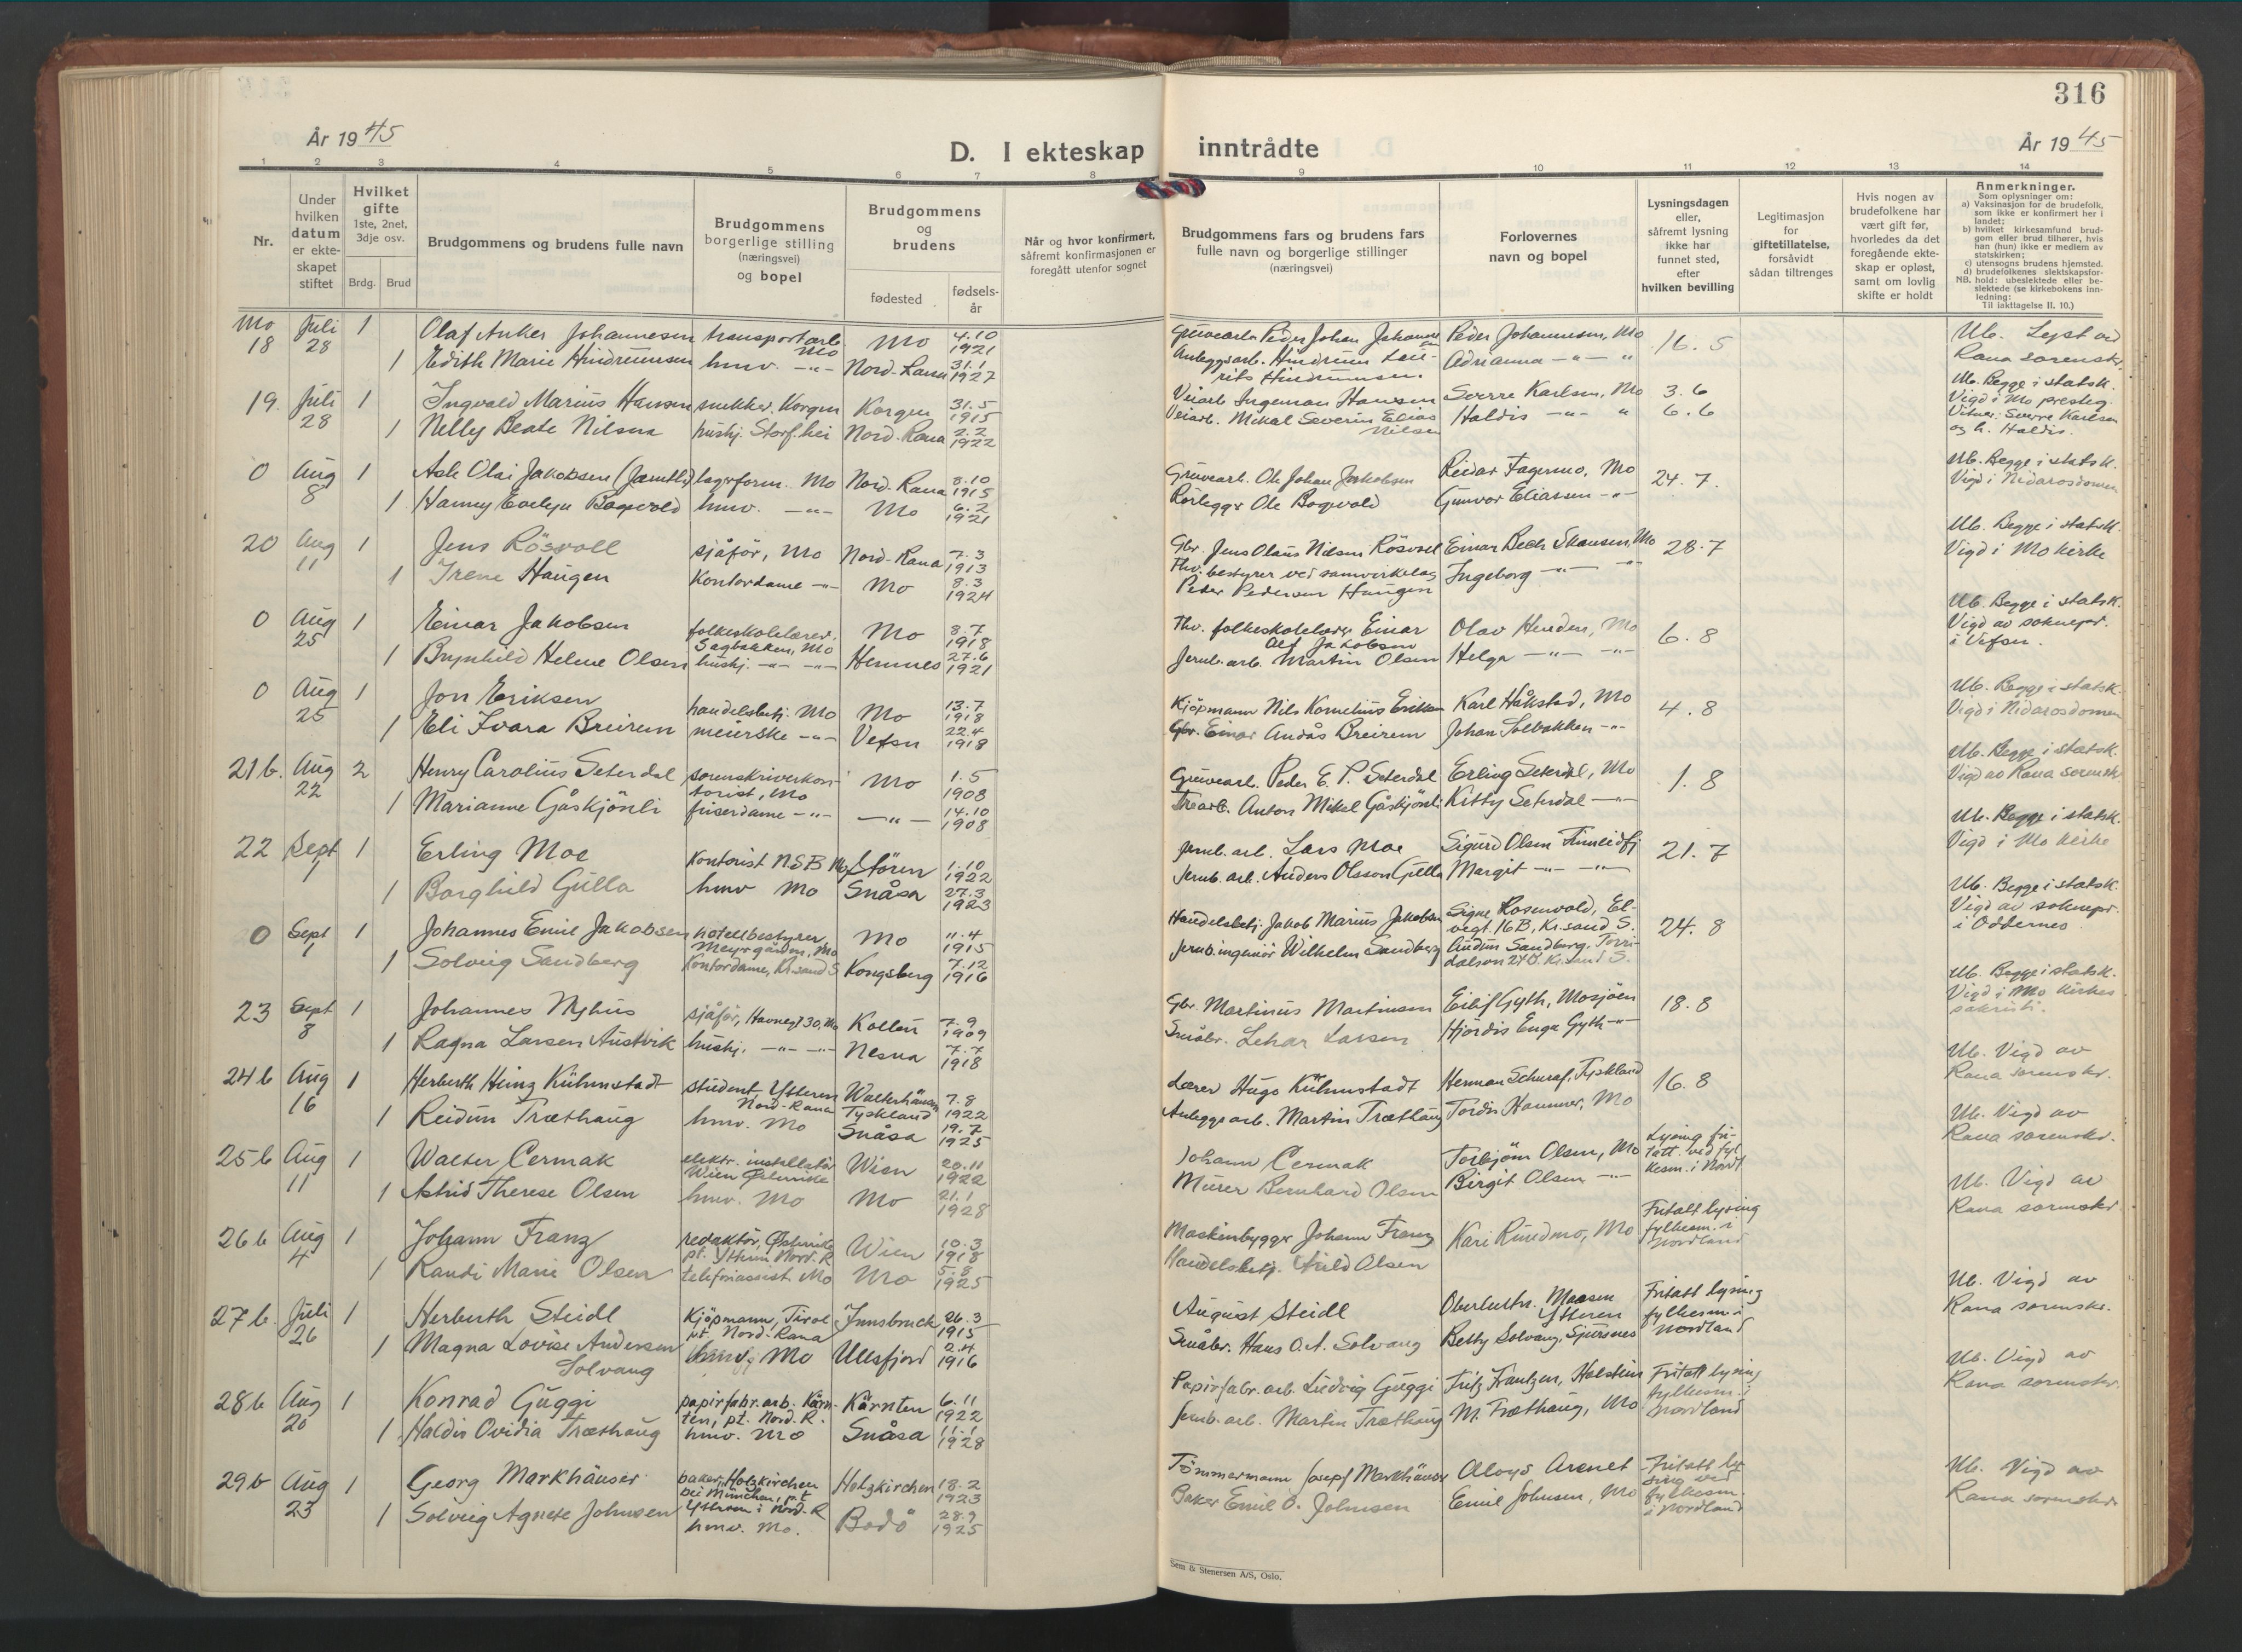 316
År 1945
D. I ekteskap inntrådte
År 1945
1 2 3 4 5 6 7 8 9 10 11 12 13 14
Nr.
Under
hvilken
datum
er ekte-
skapet
stiftet
Hvilket
gifte
1ste, 2net,
3dje osv.
Brdg. Brud
Brudgommens og brudens fulle navn
Brudgommens
borgerlige stilling
(næringsvei)
og bopel
Brudgommens
og
brudens
fødested
fødsels-
år
Når og hvor konfirmert,
såfremt konfirmasjonen er
foregått utenfor sognet
Brudgommens fars og brudens fars
fulle navn og borgerlige stillinger
(næringsvei)
Forlovernes
navn og bopel
Lysningsdagen
eller,
såfremt lysning
ikke har
funnet sted,
efter
hvilken bevilling
Legitimasjon
for
giftetillatelse,
forsåvidt
sådan tiltrenges
Hvis nogen av
brudefolkene har
vært gift før,
hvorledes da det
foregående ekte-
skap er opløst,
samt om lovlig
skifte er holdt
Anmerkninger.
Som oplysning om:
a) Vaksinasjon for de brudefolk,
som ikke er konfirmert her i
landet;
b) hvilket kirkesamfund brud-
gom eller brud tilhører, hvis
han (hun) ikke er medlem av
statskirken;
c) utensogns brudens hjemsted.
d) brudefolkenes slektskapsfor-
NB. hold: ubeslektede eller be-
slektede (se kirkebokens inn-
ledning:
Til iakttagelse II. 10.)
Mo 18 Juli 28 1 Olaf Anker Johannesen transportarb. Mo Mo 4.10 1921 Gruvearb. Peder Johan Johannesen Peder Johannesen, Mo 16.5 Ub. Lyst ved
1 Edith Marie Hindrumsen hmv. -"- Nord-Rana 31.1 1927 Anleggsarb. Hindrum Lau-
rits Hindrumsen. Adrianna -"- " Rana sorensk.
19. Juli 28 1 Ingvald Marius Hansen snekker, Korgen Korgen 31.5 1915 Veiarb. Ingeman Hansen Sverre Karlsen, Mo 3.6 Ub. Begge i statsk.
Vigd i Mo presteg.
1 Nelly Beate Nilsen hushj. Storf.hei Nord-Rana 2.2 1922 Veiarb. Mikal Severin Elias Nilsen Haldis -"- " 6.6 Vitner: Sverre Karlsen
og h. Haldis.
0 Aug 8 1 Ask Olai Jakobsen (Jamtli) lagerform. Mo Nord-Rana 8.10 1915 Gruvearb. Ole Johan Jakobsen Reidar Fagermo, Mo 24.7. Ub. Begge i statsk.
1 Hanny Evelyn Bogvold hmv. -"- Mo 6.2 1921 Rørlegger Ole Bogvold Gunvor Eliassen -"- Vigd i Nidarosdomen
20 Aug 11 1 Jens Rösvoll sjåför, Mo Nord-Rana 7.3 1913 Gbr. Jens Olaus Nilsen Rösvoll Einar Bech Skansen, Mo 28.7 Ub. Begge i statsk.
1 Irene Haugen Kontordame -"- Mo 8.3 1924 Fhv. bestyrer ved samvirkelag
Peder Pedersen Haugen Ingeborg -"- -"- Vigd i Mo kirke
0 Aug 25 1 Einar Jakobsen folkeskolelærer,
Sagbakken, Mo Mo 8.7 1918 Fhv. folkeskolelærer Einar
Alf Jakobsen Olav Henden, Mo 6.8 Ub. Begge i statsk.
Vigd av soknepr.
1 Brynhild Helene Olsen hushj. -"- -"- Hemnes 27.6 1921 Jernb.arb. Martin Olsen Helga -"- -"- i Vefsn.
0 Aug 25 1 Jon Eriksen handelsbetj. Mo Mo 13.7 1918 Kjöpmann Nils Kornelius Eriksen Karl Håkstad, Mo 4.8 Ub. Begge i statsk.
1 Eli Ivara Breirem meierske -"- Vefsn 22.4 1918 Gbr. Einar Andås Breirem Johan Solbakken -"- Vigd i Nidarosdomen
21 b. Aug 22 2 Henry Carolius Seterdal sorenskriverkon-
torist, Mo Mo 1.5 1908 Gruvearb. Peder E. P. Seterdal Erling Seterdal, Mo 1.8 Ub. Begge i statsk.
1 Marianne Gåskjönli friserdame -"- -"- 14.10 1908 Trearb. Anton Mikal Gåskjönli Kitty Seterdal -"- Vigd av Rana sorensk
22 Sept 1 1 Erling Moe Kontorist NSB Mo Stören 1.10 1922 Jernb. arb. Lars Moe Sigurd Olsen Finneidfj 21.7 Ub. Begge i statsk.
1 Borghild Gulla hmv Mo Snåsa 27.3 1923 Jernb. arb. Anders Olsson Gulla Margit -"- -"- Vigd i Mo kirke
0 Sept 1 1 Johannes Emil Jakobsen hotellbestyrer
Meyergården, Mo Mo 11.4 1915 Handelsbetj. Jakob Marius Jakobsen Signe Rosenvold, El-
vegt. 16B, Kr.sand S. 24.8 Ub. Begge i statsk.
Vigd av soknepr.
1 Solveig Sandberg Kontordame, Kr.sand S Kongsberg 7.12 1916 Jernb.ingeniör Wilhelm Sandberg Audun Sandberg, Torri-
dalsvn 27 B. Kr.sand S. i Oddernes
23 Sept 8 1 Johannes Myhus sjåför, Havnegt 30, Mo 7.9 1909 Gbr. Martinus Martinsen Eilif Gyth, Mosjöen 18.8 Ub. Begge i statsk.
1 Ragna Larsen Austvik hushj. -"- -"- Nesna 7.7 1918 Småbr. Larsen Hjördis Enga Gyth -"- Vigd i Mo kirkes
sakristi.
24 b Aug 16 1 Herberth Heinz Kühmstadt student Ytteren
Nord-Rana Tyskland 7.8 1922 Lærer Hugo Kühmstadt Herman , Tyskland 16.8 Ub. Vigd av
1 Reidun Træthaug hmv. Mo Snåsa 19.7 1925 Anleggsarb. Martin Træthaug Tordis Hammer, Mo Rana sorenskr.
25 b Aug 11 1 Walter Cermak elektr. installatör
Wien Østerrike Wien 20.11 1922 Johann Cermak Torbjörn Olsen, Mo Lysing fri-
tatt ved fyl-
kesm. i Nordl. Ub. Vigd av
1 Astrid Therese Olsen hmv. Mo Mo 21.1 1928 Murer Bernhard Olsen Birgit Olsen -"- Rana sorenskr.
26 b Aug 4 1 Johann Franz redaktör, Østerrike
pt. Ytteren Nord.R Wien 10.3 1918 Maskinbygger Johann Franz Kari Rundmo, Mo Fritatt lysing
fylkesm. i
Nordland Ub. Vigd av
1 Randi Marie Olsen telefonassist. Mo Mo 5.8 1925 Handelsbetj. Arild Olsen Rana sorenskr
27 b. Juli 26 1 Herberth Steidl Kjöpmann, Tirol
pt. Nord-Rana Innsbruck 26.3 1915 August Steidl Oberleutn. Maasen
Ytteren Fritatt lysing
fylkesm. i
Nordland Ub. Vigd av
1 Magna Lovise Andersen
Solvang hmv Mo Ullsfjord 2.4 1916 Småbr. Hans O. A. Solvang Betty Solvang, Sjursnes Rana sorenskr.
28 b Aug 20 1 Konrad Guggi papirfabr.arb. Kärn-
ten, pt. Nord. R. Kärnten 6.11 1922 Papirfabr.arb. Ludvig Guggi Fritz Frantzen, Holstein Fritatt lysing
fylkesm. i
Nordland Ub. Vigd av
1 Haldis Ovidia Træthaug hmv. Mo Snåsa 11.1 1928 Jernb. arb. Martin Træthaug M. Træthaug, Mo Rana sorenskr.
29 b Aug 23 1 Georg Markhäuser baker, Holzkirchen
bei München, pt
Ytteren i Nord. R Holzkirchen 18.2 1923 Tömmermann Josepf Markhäuser Aloys Arenet Fritatt ly-
sing ved
fylkesm.
i Nordland Ub. Vigd av
1 Solveig Agnete Johnsen hmv. Mo. Bodö 28.9 1925 Baker Emil O. Johnsen Emil Johnsen, Mo Rana sorenskr
Sem & Stenersen A/S, Oslo.